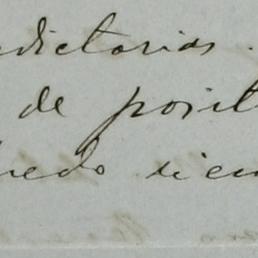 dictorias.
de posit
uedo siem